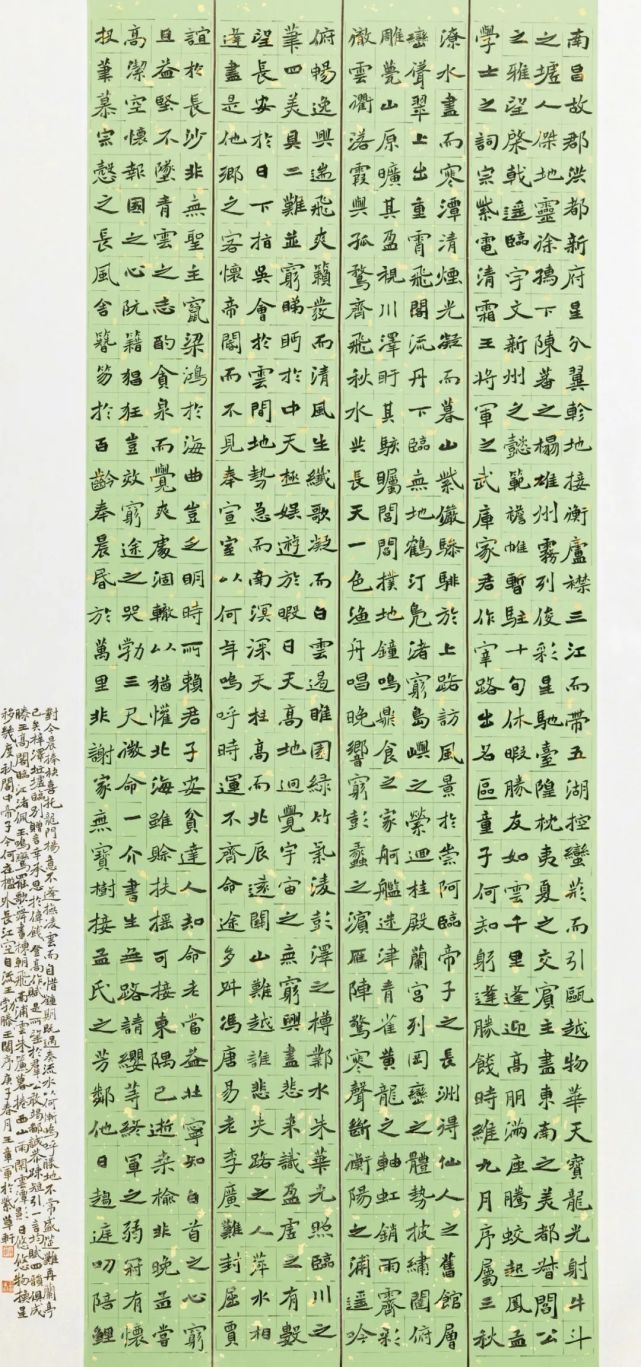 南昌故郡洪都新府星分翼軫地接衡廬襟三江而帶五湖控蠻荊而引甌越物華天寶龍光射牛斗
之墟人傑地靈徐孺下陳蕃之榻雄州霧列俊彩星馳臺隍枕夷夏之交賓主盡東南之美都督閻公
之雅望棨戟遙臨宇文新州之懿範襜帷暫駐十旬休暇勝友如雲千里逢迎高朋滿座騰蛟起鳳孟
學士之詞宗紫電清霜王將軍之武庫家君作宰路出名區童子何知躬逢勝餞時維九月序屬三秋
潦水盡而寒潭清煙光凝而暮山紫儼驂騑於上路訪風景於崇阿臨帝子之長洲得仙人之舊館層
巒聳翠上出重霄飛閣流丹下臨無地鶴汀鳧渚窮島嶼之縈迴桂殿蘭宮列岡巒之體勢披繡闥俯
雕甍山原曠其盈視川澤盱其駭矚閭閻撲地鐘鳴鼎食之家舸艦迷津青雀黃龍之軸虹銷雨霽彩
徹雲衢落霞與孤鶩齊飛秋水共長天一色漁舟唱晚響窮彭蠡之濱雁陣驚寒聲斷衡陽之浦遙吟
俯暢逸興遄飛爽籟發而清風生纖歌凝而白雲遏睢園綠竹氣凌彭澤之樽鄴水朱華光照臨川之
筆四美具二難並窮睇眄於中天極娛遊於暇日天高地迥覺宇宙之無窮興盡悲來識盈虛之有數
望長安於日下指吳會於雲間地勢急而南溟深天柱高而北辰遠關山難越誰悲失路之人萍水相
逢盡是他鄉之客懷帝閽而不見奉宣室以何年嗚呼時運不齊命途多舛馮唐易老李廣難封屈賈
誼於長沙非無聖主竄梁鴻於海曲豈乏明時所賴君子安貧達人知命老當益壯寧知白首之心窮
且益堅不墜青雲之志酌貪泉而覺爽處涸轍以猶懽北海雖賒扶搖可接東隅已逝桑榆非晚孟嘗
高潔空懷報國之心阮籍猖狂豈效窮途之哭勃三尺微命一介書生無路請纓等終軍之弱冠有懷
投筆慕宗愨之長風舍簪笏於百齡奉晨昏於萬里非謝家無寶樹接孟氏之芳鄰他日趨庭叨陪鯉
對今晨捧袂喜托龍門楊意不逢撫凌雲而自惜鍾期既遇奏流水以何慚嗚呼勝地不常盛筵難再蘭亭
已矣梓澤坵墟臨別贈言幸承恩於偉餞登高作賦是所望於群公敢竭鄙誠恭疏短引一言均賦四韻俱成
滕王高閣臨江渚佩玉鳴鸞罷歌舞畫棟朝飛南浦雲朱簾暮捲西山雨閒雲潭影日悠悠物換星
移幾度秋閣中帝子今何在檻外長江空自流王勃滕王閣序庚子春月王章軍於紫草軒